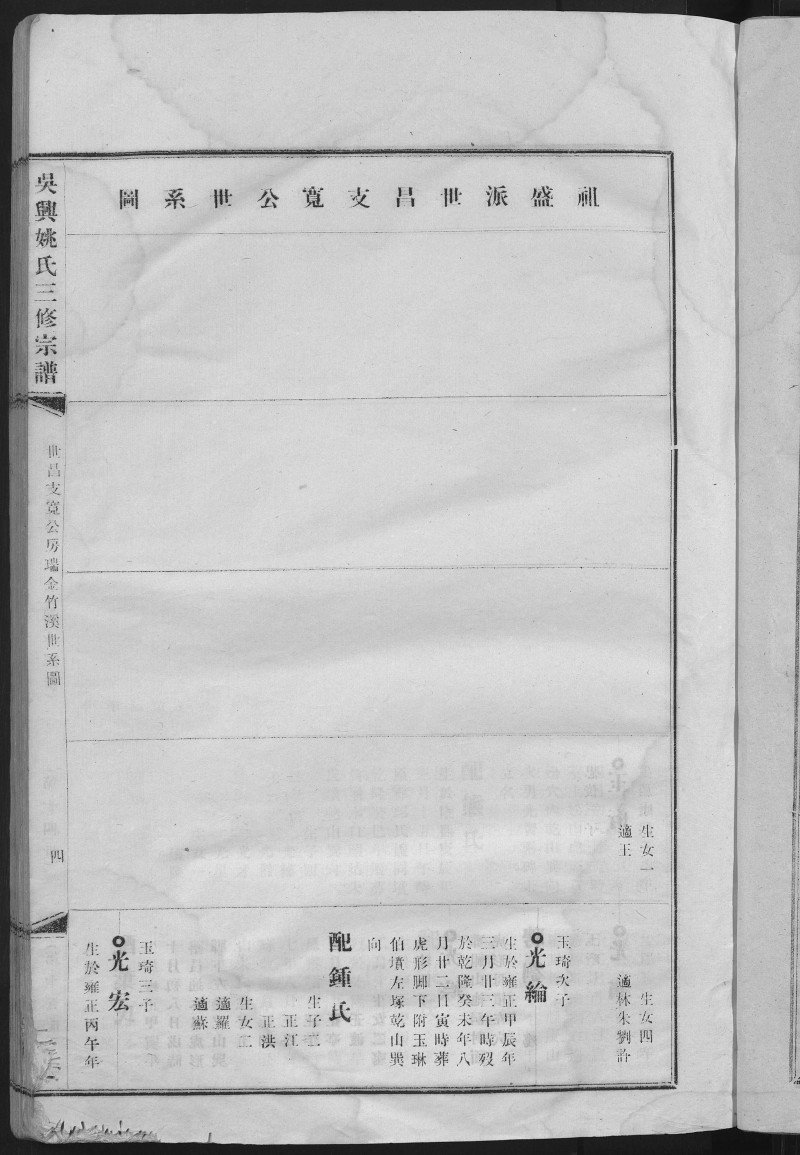 祖盛派世昌支寬公世系圖
生女一
適王
生女四
適林朱劉許
玉琦次子
光綸
生於雍正甲辰年
三月廿三午時歿
於乾隆癸未年八
月廿二日寅時葬
虎形脚下附玉琳
伯墳左塚乾山巽
向
配鍾氏
生子二
正江
正洪
生女二
適羅
適蘇
玉琦三子
光宏
生於雍正丙午年
吳興姚氏三修宗譜
世昌支寬公房瑞金竹溪世系圖
四